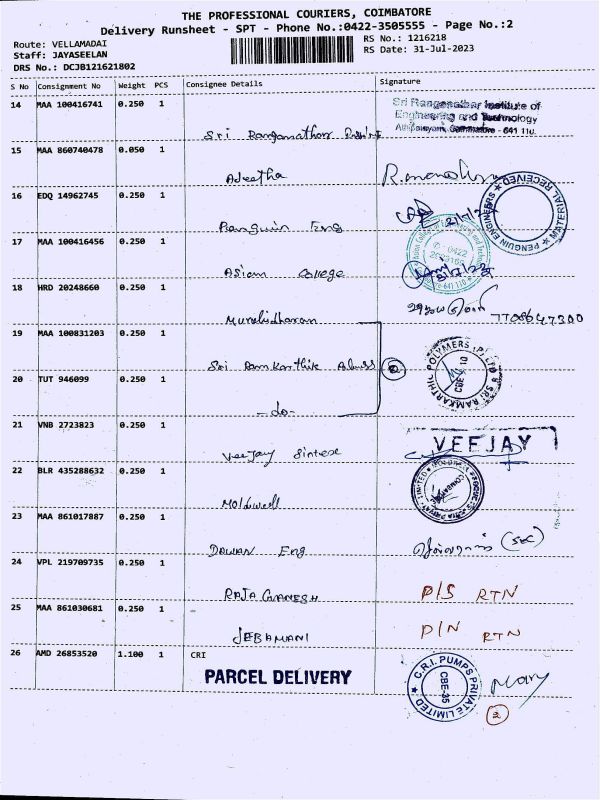 THE PROFESSIONAL COURIERS, COIMBATORE
Delivery Runsheet - SPT - Phone No.:0422-3505555 - Page No.:2
Route: VELLAMADAI
RS No.: 1216218
Staff: JAYASEELAN
RS Date: 31-Jul-2023
DRS No.: DCJB121621802
S No Consignment No Weight PCS Consignee Details Signature
14 MAA 100416741 0.250 1
Sri Ranganathar Institute of
Engineering and Technology
Athipalayam, Coimbatore - 641 110.
Sri Ranganathar
15 MAA 860740478 0.050 1
Ajeetha
16 EDQ 14962745 0.250 1
PENGUIN ENGINEERS
MATERIAL RECEIVED
Penguin Eng
17 MAA 100416456 0.250 1
Asian College
18 HRD 20248660 0.250 1
Muralidharan
19 MAA 100831203 0.250 1
Sri Ramkarthik
SRI RAMKARTHIC POLYMERS (P) LTD
CBE 10
20 TUT 946099 0.250 1
-do-
21 VNB 2723823 0.250 1
VEEJAY
Veejay
22 BLR 435288632 0.250 1
Moldwell
23 MAA 861017887 0.250 1
Dawan Eng
(SEC)
24 VPL 219709735 0.250 1
RAJA GANESH
D/S RTN
25 MAA 861030681 0.250 1
JEBAMANI
D/N RTN
26 AMD 26853520 1.100 1 CRI
PARCEL DELIVERY
C.R.I. PUMPS PRIVATE LIMITED
CBE-35
Mary
2